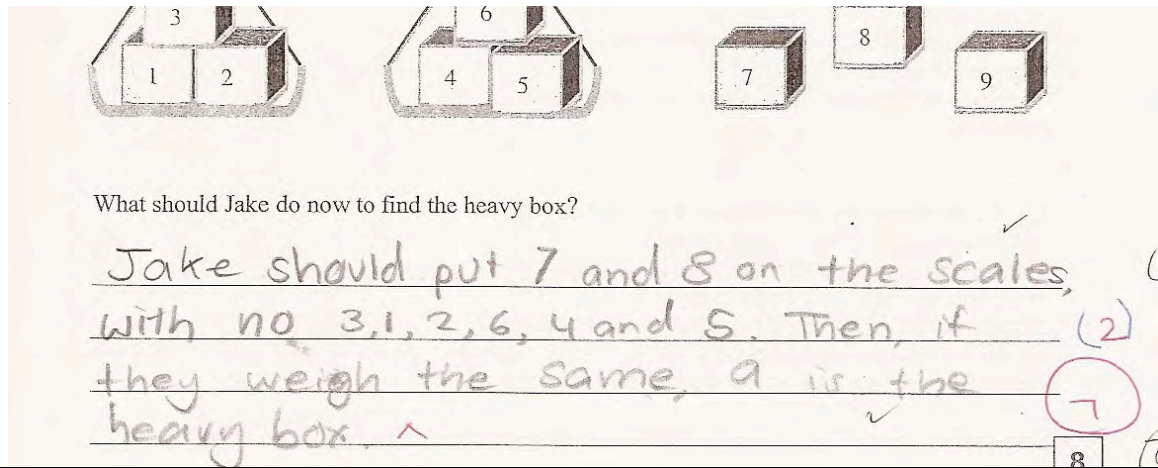 3
6
8
1 2
4 5
7
9
What should Jake do now to find the heavy box?
Jake should put 7 and 8 on the scales,
with no 3, 1, 2, 6, 4 and 5. Then, if
(2)
they weigh the same, 9 is the
heavy box. ^
8